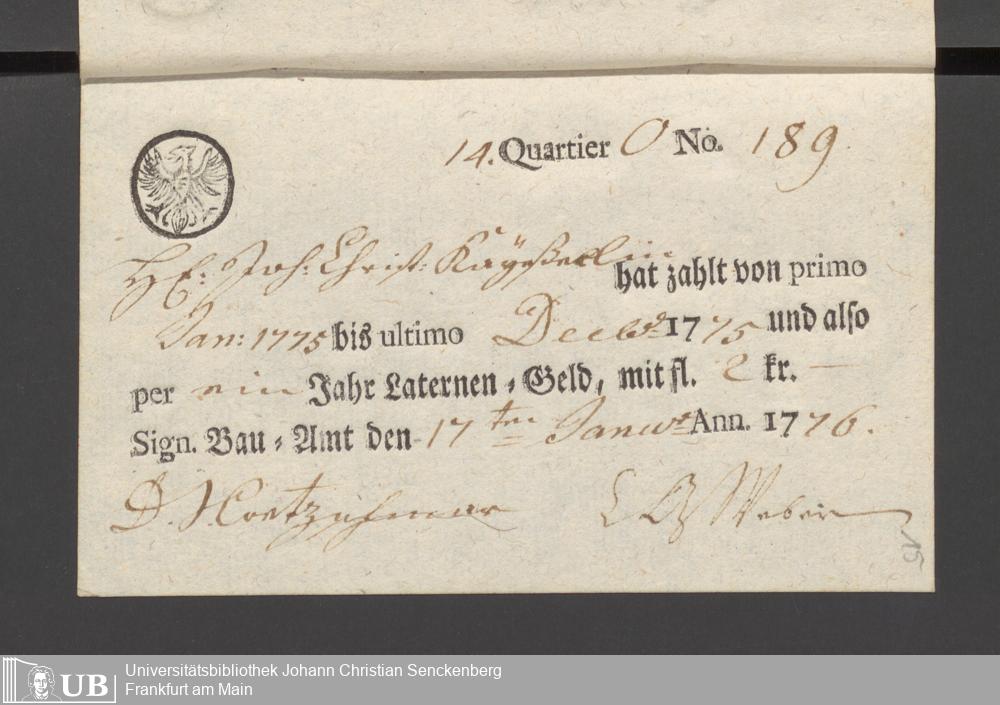 14. Quartier O No. 189.
H: Joh: Christ: hat zahlt von primo
Jan: 1775 bis ultimo Decbr 1775 und also
per ein Jahr Laternen-Geld, mit fl. 2 kr. —
Sign. Bau-Amt den 17ten Januar Ann. 1776.
D. Weber
15
UB
Universitätsbibliothek Johann Christian Senckenberg
Frankfurt am Main